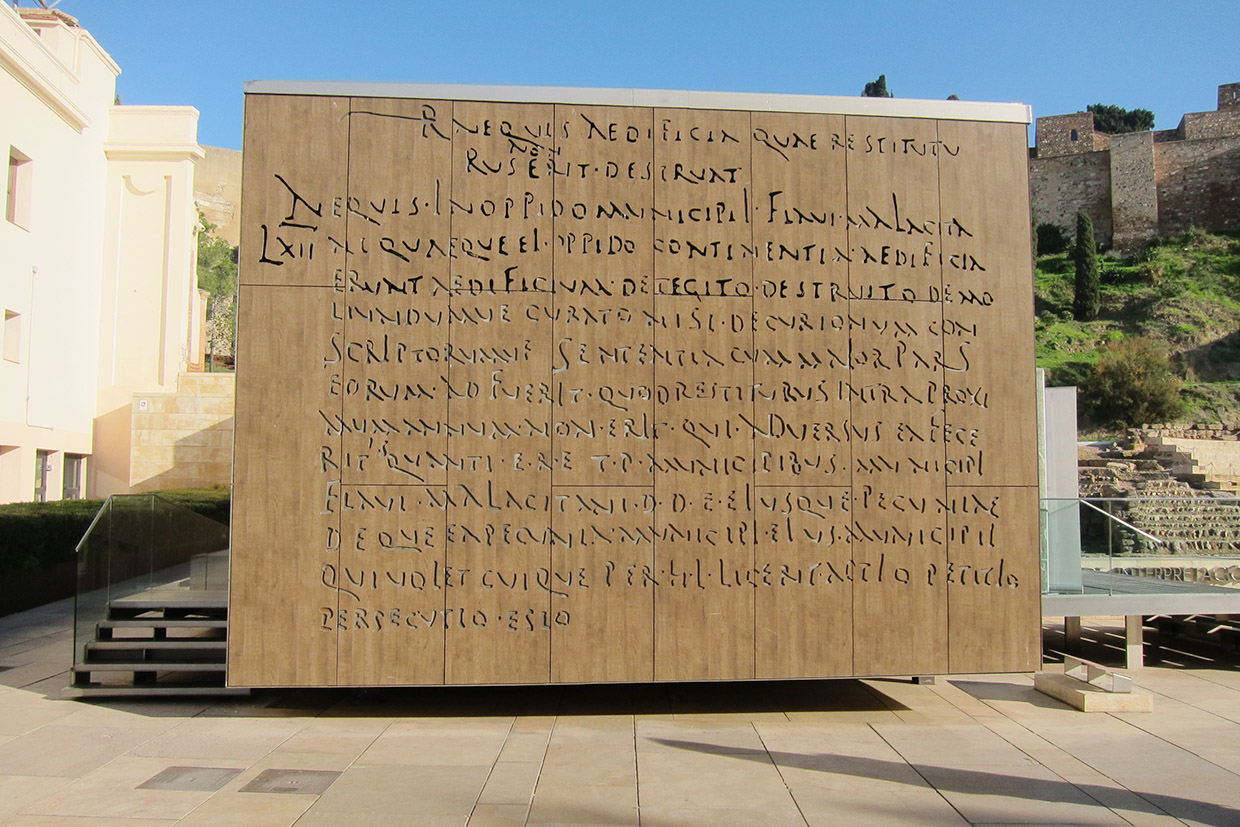 R NE QUIS AEDIFICIA QUAE RESTITUTU
NON
RUS ERIT · DESTRUAT
NE QUIS · IN OPPIDO MUNICIPII · FLAVI · MALACITA
LXII NI QUAEQUE EI · OPPIDO CONTINENTIA · AEDIFICIA
ERUNT AEDIFICIUM · DETEGITO · DESTRUITO DEMO
LIUNDUMVE CURATO NISI · DECURIONUM CON
SCRIPTORUMVE SENTENTIA CUM MAIOR PARS
EORUM · ADFUERIT · QUOD RESTITURUS INTRA PROXI
MUM ANNUM NON · ERIT · QUI · ADVERSUS EA FECE
RIT IS QUANTI · E · R · E · T · P · MUNICIPIBUS · MUNICIPI
FLAVI · MALACITANI · D · D · E · EIUSQUE · PECUNIAE
DEQUE EA PECUNIA · MUNICIPI · EIUS · MUNICIPII
QUI VOLET CUIQUE PER · H · L · LICEBIT ACTIO PETITIO
PERSECUTIO · ESTO
INTERPRETAC